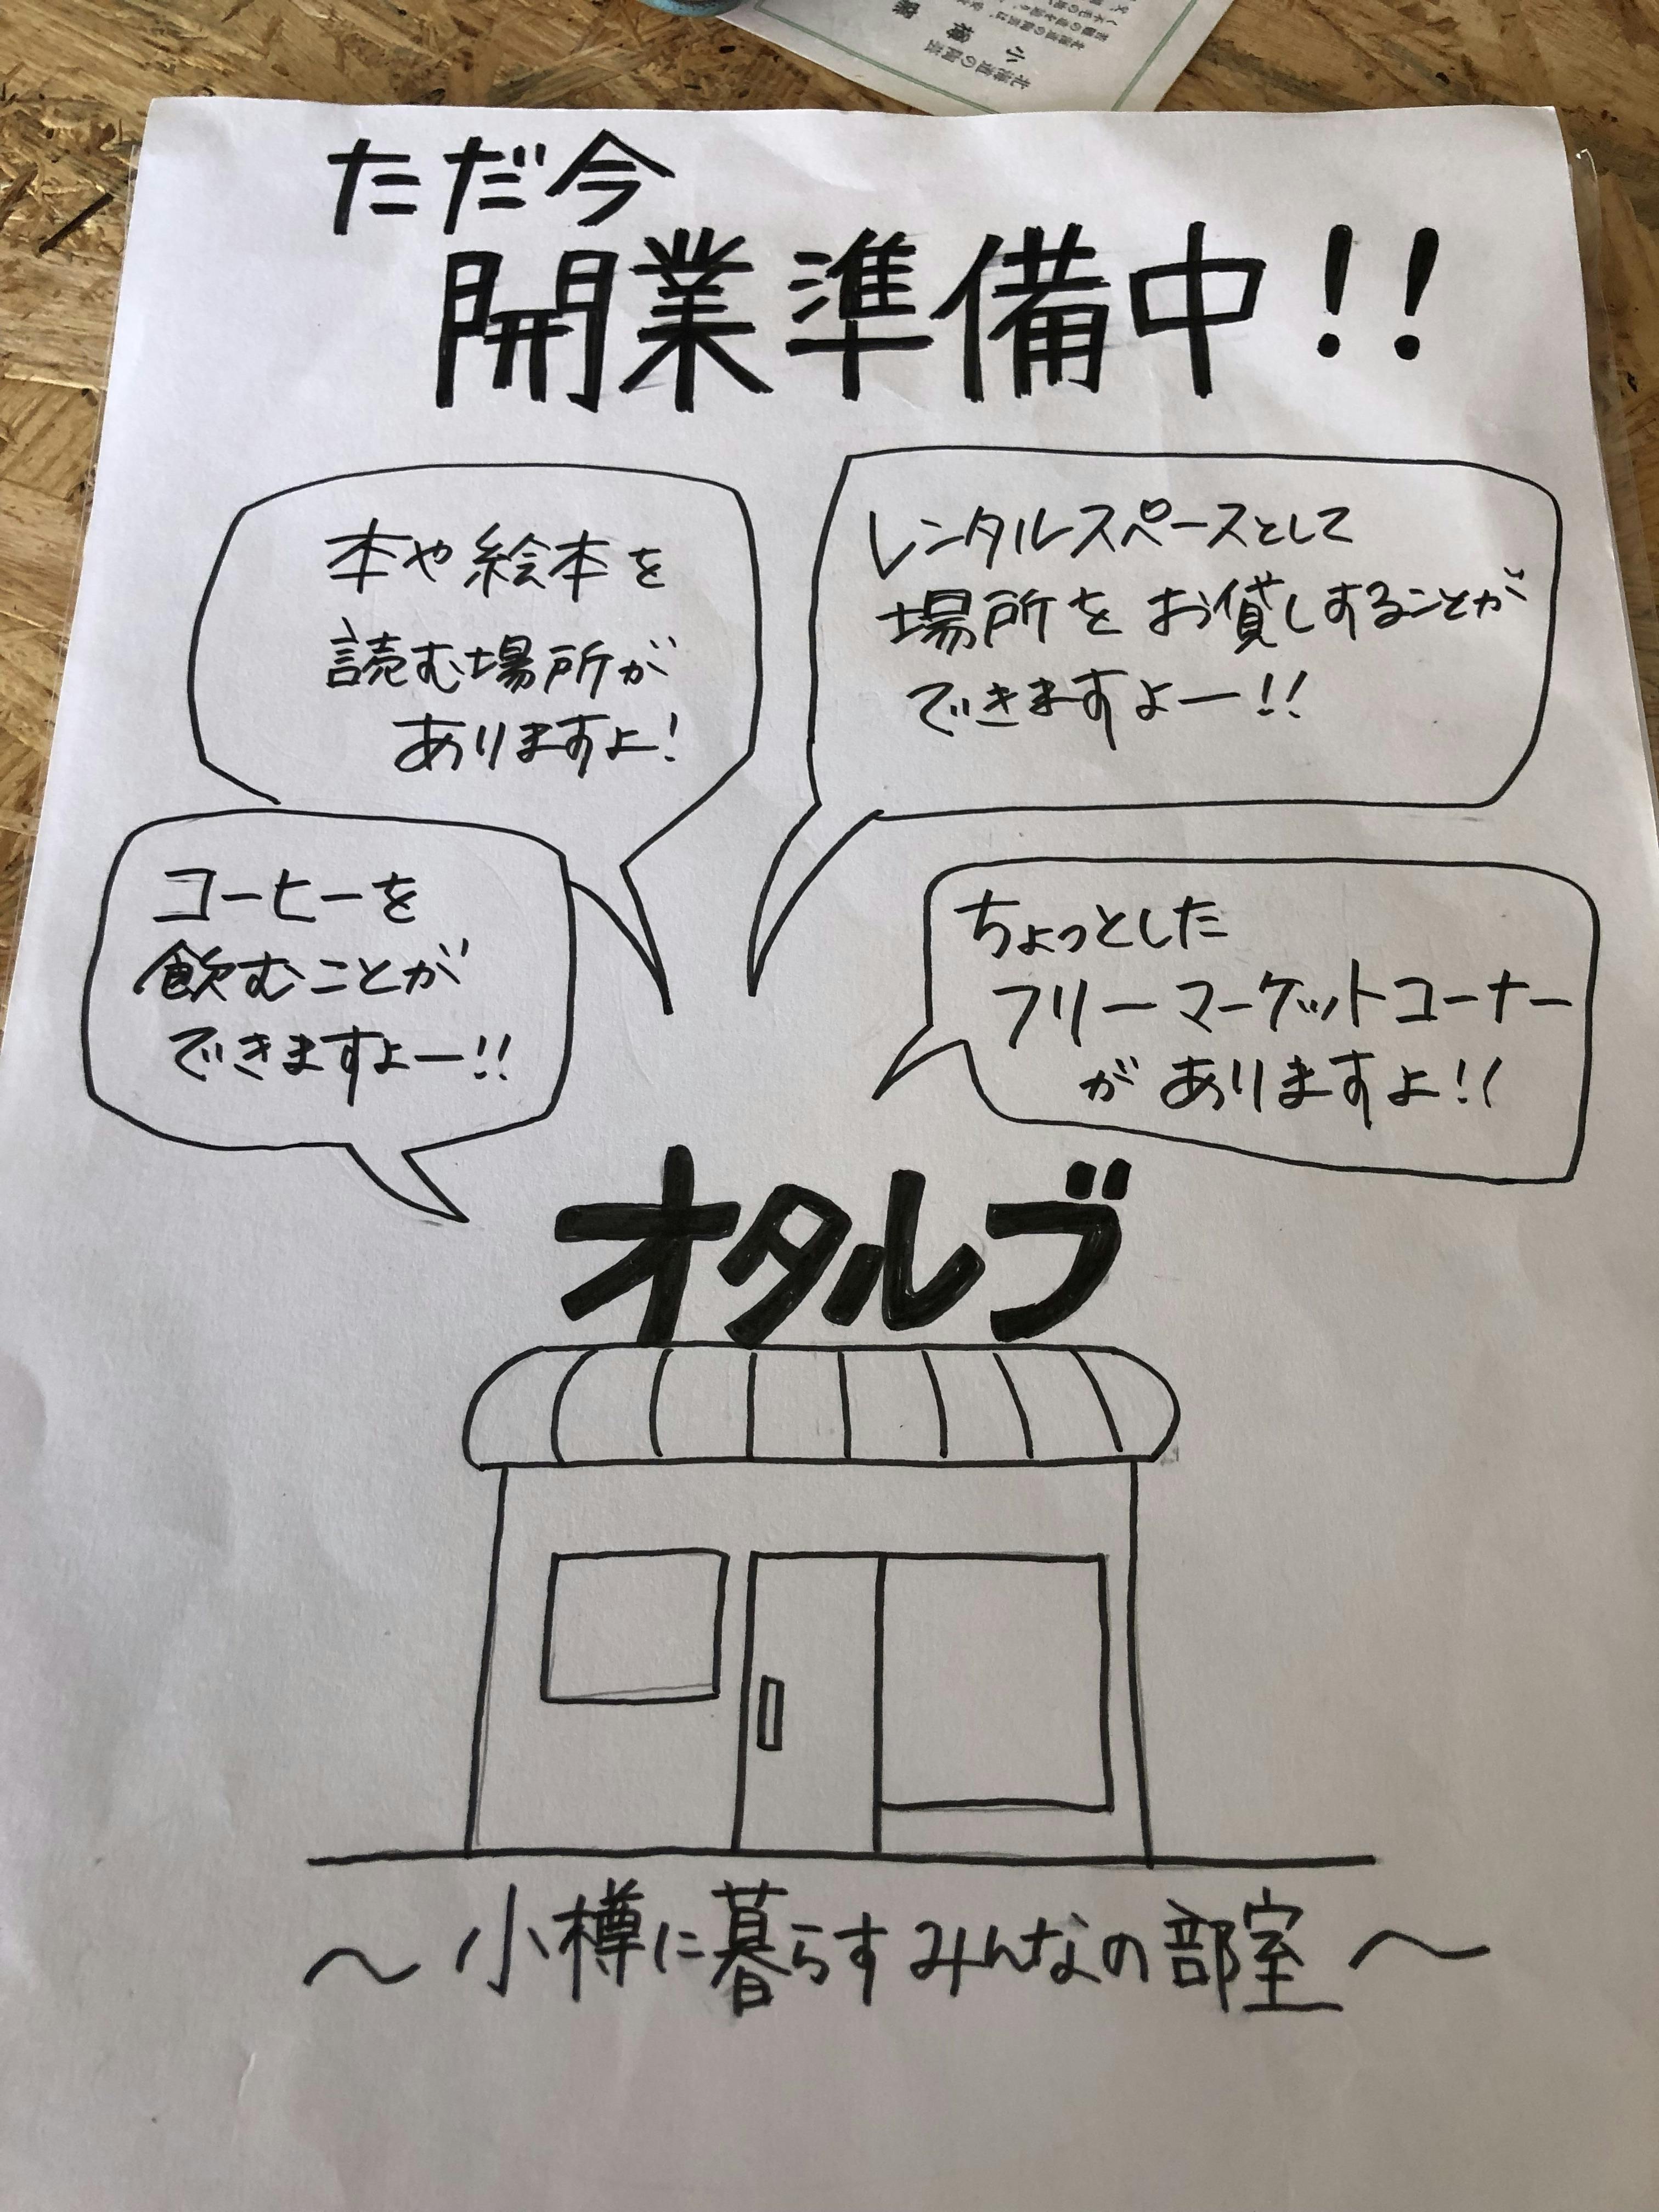 ただ今
開業準備中!!
本や絵本を
読む場所が
ありますよ!
レンタルスペースとして
場所をお貸しすることが
できますよー!!
コーヒーを
飲むことが
できますよー!!
ちょっとした
フリーマーケットコーナー
がありますよ!!
オタルブ
〜小樽に暮らすみんなの部室〜